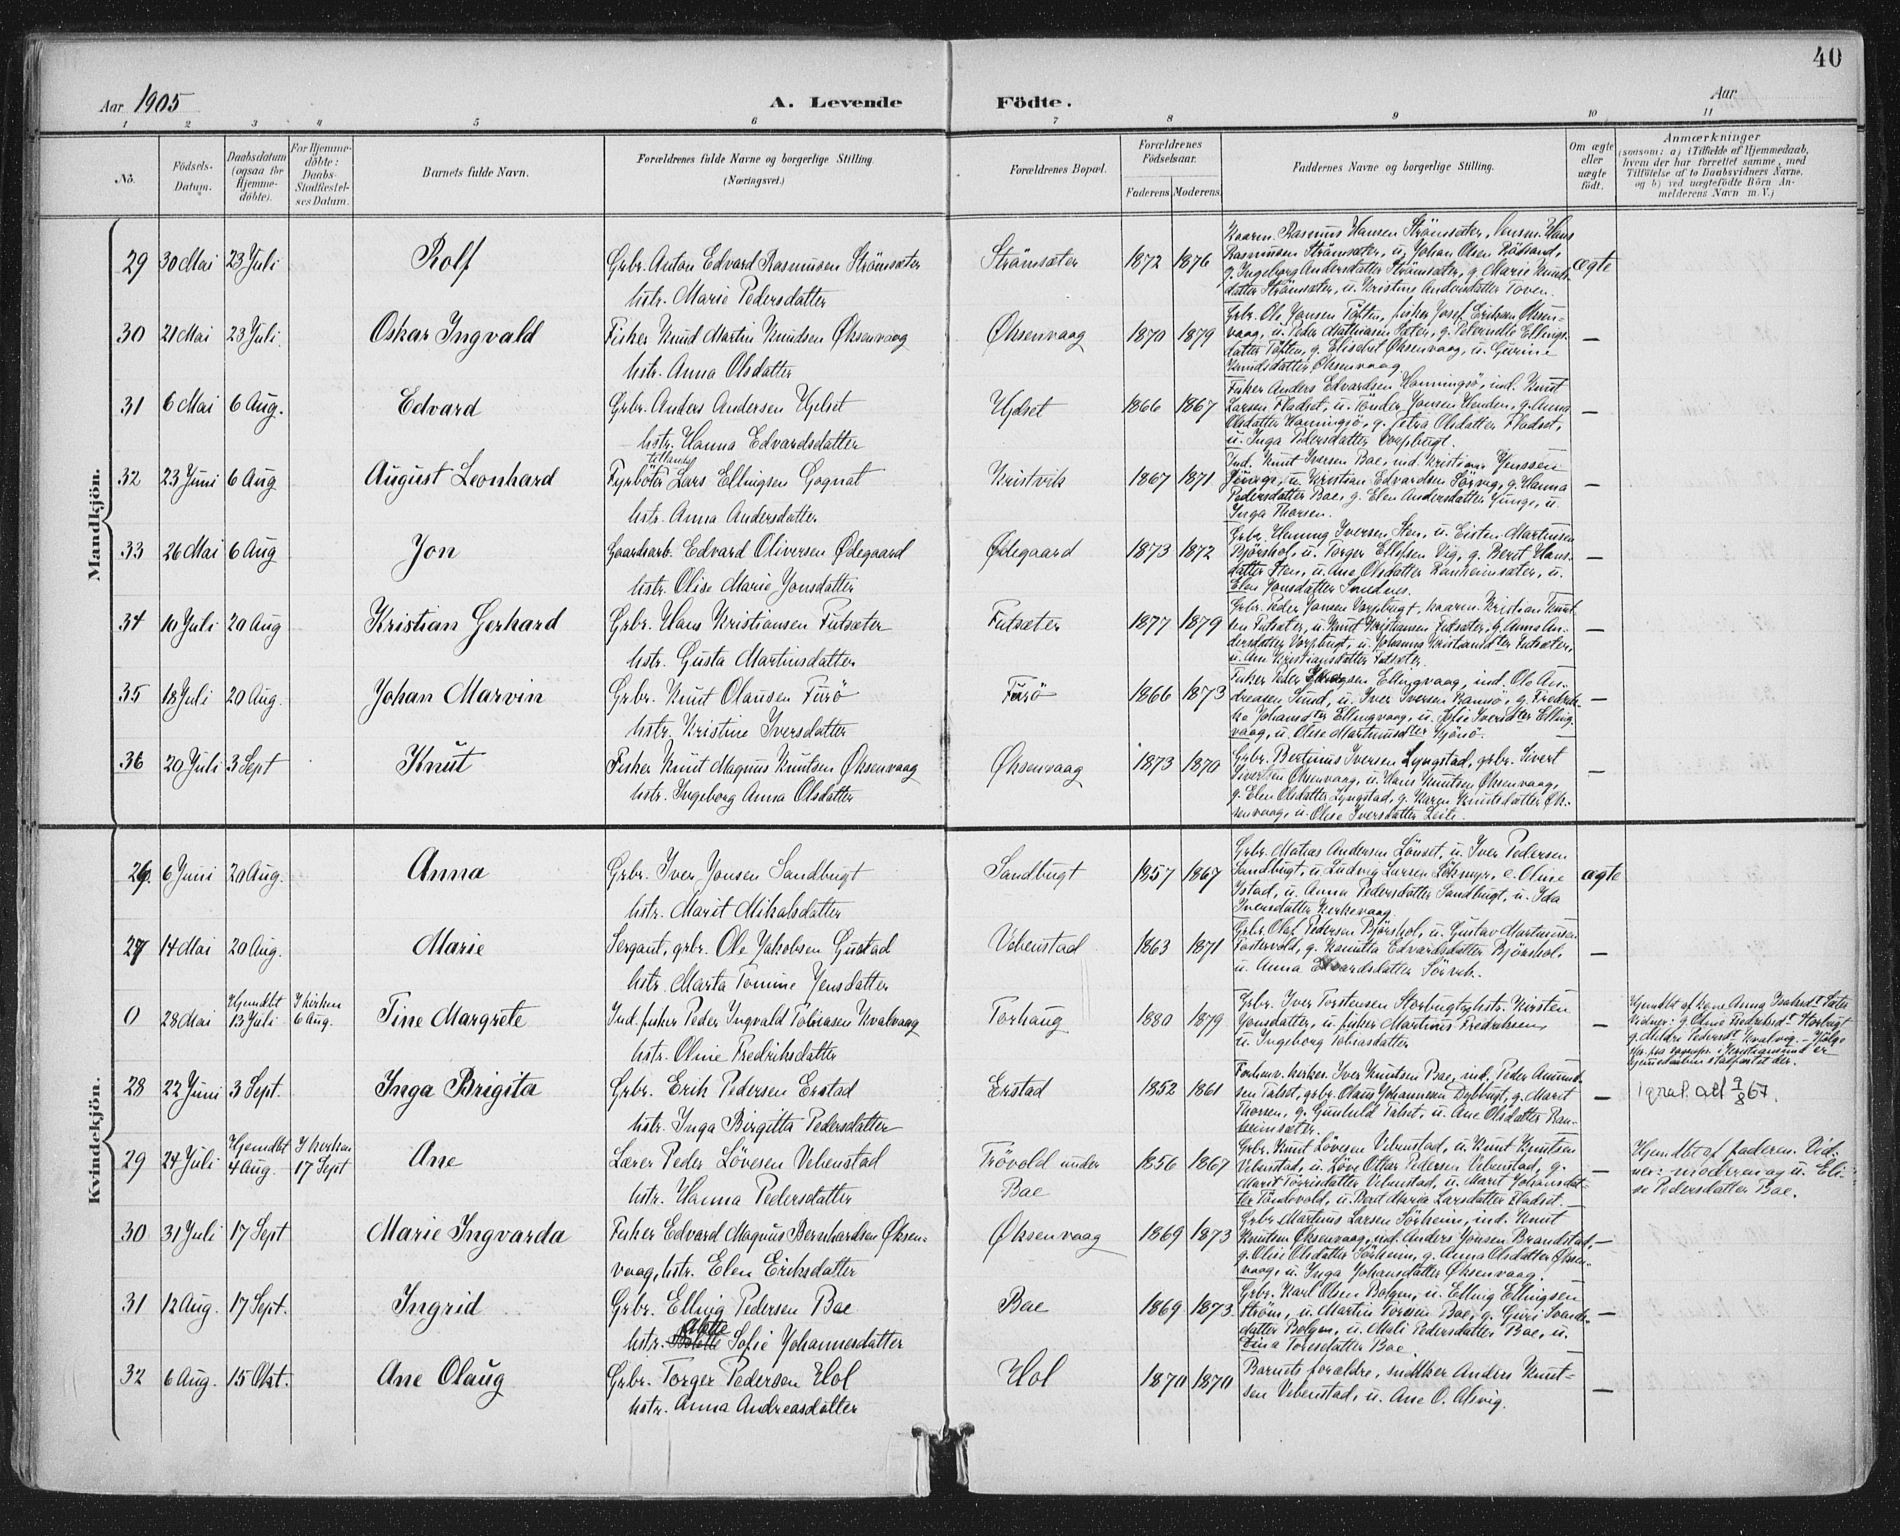 40
Aar 1905 A. Levende Födte. Aar
1 2 3 4 5 6 7 8 9 10 11
No.
Födsels-Datum.
Daabsdatum (ogsaa for Hjemme-döbte).
For Hjemme-döbte: Daabs-Stadfæstel-ses Datum.
Barnets fulde Navn.
Forældrenes fulde Navne og borgerlige Stilling.
(Næringsvei.)
Forældrenes Bopæl.
Forældrenes Födselsaar.
Faderens Moderens
Faddernes Navne og borgerlige Stilling.
Om ægte eller uægte födt.
Anmærkninger
(saasom: a) i Tilfælde af Hjemmedaab,
hvem der har forrettet samme, med
Tilföielse af to Daabsvidners Navne,
og b) ved uægtefödte Börn An-
melderens Navn m. V.)
Mandkjön.
29 30 Mai 23 Juli Rolf Grbr. Anton Edvard Rasmusen Strömsæter
hstr. Marie Pedersdatter
Strömsæter 1872 1876
Kaarm. Rasmus Hansen Strömsæter, Hans
Rasmusen Strömsæter, u. Johan Olsen Rödsand,
g. Ingeborg Andersdatter Strömsæter, g. Marie Knuts-
datter Strömsæter, u. Kristine Andersdatter Toven.
ægte
30 21 Mai 23 Juli Oskar Ingvald Fisker Knud Martin Knudsen Øksenvaag
hstr. Anna Olsdatter
Øksenvaag 1870 1879
Grbr. Ole Jonsen Töften, fisker Josef Eriksen Øksen-
vaag, u. Peder Mathiasen Sæter, g. Pernelle Ellings-
datter Töften, g. Elisebet Øksenvaag, u. Gurine
Knudsdatter Øksenvaag
—
31 6 Mai 6 Aug. Edvard Grbr. Anders Andersen Hjelset
hstr. Hanna Edvardsdatter
Hjelset 1866 1867
Fisker Anders Edvardsen Hanningsö, ind. Knut
Larsen Fladset, u. Tönder Jonsen Henden, g. Anna
Olsdatter Hanningsö, g. Petra Olsdatter Fladset,
u. Inga Pedersdatter Vorpbugt.
—
32 23 Juni 6 Aug August Leonhard
tillands
Fyrböter Lars Ellingsen Gognat
hstr. Anna Andersdatter
Kristvik 1867 1871
Ind. Knut Iversen Bae, ind. Kristian Jenssen
u. Kristian Edvardsen Sörvig, g. Hanna
Pedersdatter Bae, g. Elen Andersdatter Junge, u.
Inga Thorsen.
—
33 26 Mai 6 Aug Jon Gaardarb. Edvard Oliversen Ødegaard
hstr. Olise Marie Jonsdatter
Ødegaard 1873 1872
Grbr. Henning Iversen Sten, u. Eisten Martinsen
Bjørshol, u. Torger Ellefsen Vig, g. Berit Hans-
datter Sten, u. Ane Olsdatter Ranheimsæter, u.
Elen Jonsdatter Smednes.
—
34 10 Juli 20 Aug Kristian Gerhard Grbr. Hans Kristiansen Futsæter
hstr. Gusta Martinsdatter
Futsæter 1877 1879
Grbr. Peder Jonsen Vorpbugt, kaarm. Kristian Knut-
sen Futsæter, u. Knut Kristiansen Futsæter, g. Anna An-
dersdatter Vorpbugt, u. Johanna Kristiansdter Futsæter,
u. Ane Kristiansdatter Futsæter.
—
35 18 Juli 20 Aug. Johan Marvin Grbr. Knut Olausen Furö
hstr. Kristine Iversdatter
Furö 1866 1873
Fisker Peder Ellingvaag, ind. Ole An-
dreasen Sund, u. Iver Iversen Ramsö, g. Fredrik-
ke Johansdter Ellingvaag, u. Iversdter Elling-
vaag, u. Olise Martinusdter
—
36 20 Juli 3 Sept Knut Fisker Knut Magnus Knutsen Øksenvaag
hstr. Ingeborg Anna Olsdatter
Øksenvaag 1873 1870
Grbr. Bertinus Iversen Lyngstad, grbr. Sivert
Sivertsen Øksenvaag, u. Hans Knutsen Øksenvaag,
g. Elen Olsdatter Lyngstad, g. Karen Knutsdatter Øk-
senvaag, u. Olise Iversdatter Leite.
—
Kvindekjön.
26 6 Juni 20 Aug. Anna Grbr. Iver Jonsen Sandbugt
hstr. Marit Mikalsdatter
Sandbugt 1857 1867
Grbr. Matias Andersen Lönset, u. Iver Pedersen
Sandbugt, u. Ludvig Larsen Löknyr, e. Oline
Istad, u. Anna Pedersdatter Sandbugt, u. Ida
Iversdatter Kirkevaag.
ægte
27 14 Mai 20 Aug. Marie Sergant, grbr. Ole Jakobsen Gustad
hstr. Marta Tomine Jensdatter
Vebenstad 1863 1871
Grbr. Olaf Pedersen Bjørshol, u. Gustav Martinusen
Fostervold, g. Kanutta Edvardsdatter Bjørshol,
u. Anna Edvardsdatter Sörvik.
—
0 28 Mai Hjemdbt 13 Juli I kirken 6 Aug. Tine Margrete Ind. fisker Peder Ingvald Tobiasen Kvalvaag
hstr. Oline Fredriksdatter
Torhaug 1880 1879
Grbr. Iver Torstensen Storbugt, hstr. Kirsten
Jonsdatter, u. fisker Martinus Fredriksen,
u. Ingeborg Tobiasdatter
—
Hjemdbt af kone Anna Isaksdt
Vidner: g. Oline Fredriksdt Storbugt
g. Mildri Pedersdt Kvalvig.
28 22 Juni 3 Sept. Inga Brigita Grbr. Erik Pedersen Erstad
hstr. Inga Birgitta Pedersdatter
Erstad 1852 1861
Forhenv. kirkes. Iver Knutsen Bae, ind. Peder Amund-
sen Talset, grbr. Olaus Johannesen Dybbugt, g. Marit
Thorsen, g. Gunhild Talset, u. Ane Olsdatter Ran-
heimsæter.
—
29 24 Juli Hjemdbt 4 Aug. I kirken 17 Sept Ane Lærer Peder Lövesen Vebenstad
hstr. Hanna Pedersdatter
Trövold under
Bae
1856 1867
Grbr. Knut Lövesen Vebenstad, u. Knut Knutsen
Vebenstad, u. Löve Ottar Pedersen Vebenstad, g.
Marit Torrisdatter Vebenstad, u. Marit Johansdat-
ter Tündevold, u. Berit Maria Larsdatter Fladset.
—
Hjemdbt af faderen. Vid-
ner: moderen og u. Eli-
se Pedersdatter Bae.
30 31 Juli 17 Sept Marie Ingvarda Fisker Edvard Magnus Bernhardsen Øksen-
vaag, hstr. Elen Eriksdatter
Øksenvaag 1869 1873
Grbr. Martinus Larsen Sörheim, ind. Knut
Knutsen Øksenvaag, ind. Anders Jonsen Brandstad,
g. Olise Olsdatter Sörheim, g. Anna Olsdatter Øksen-
vaag, u. Inga Johansdatter Øksenvaag.
—
31 12 Aug. 17 Sept. Ingrid Grbr. Elling Pedersen Bae
hstr. Alette Sofie Johannesdatter
Bae 1869 1873
Grbr. Karl Olsen Bolgen, u. Elling Ellingsen
Ström, u. Martin Torisen Bae, g. Guri Ivars-
datter Bolgen, u. Mali Pedersdatter Bae, u.
Lina Torisdatter Bae.
—
32 6 Aug. 15 Okt. Ane Olaug Grbr. Torger Pedersen Hol
hstr. Anna Andreasdatter
Hol 1870 1870
Barnets forældre, snidker Anders Knut-
sen Vebenstad, u. Ane O. Alsvig.
—